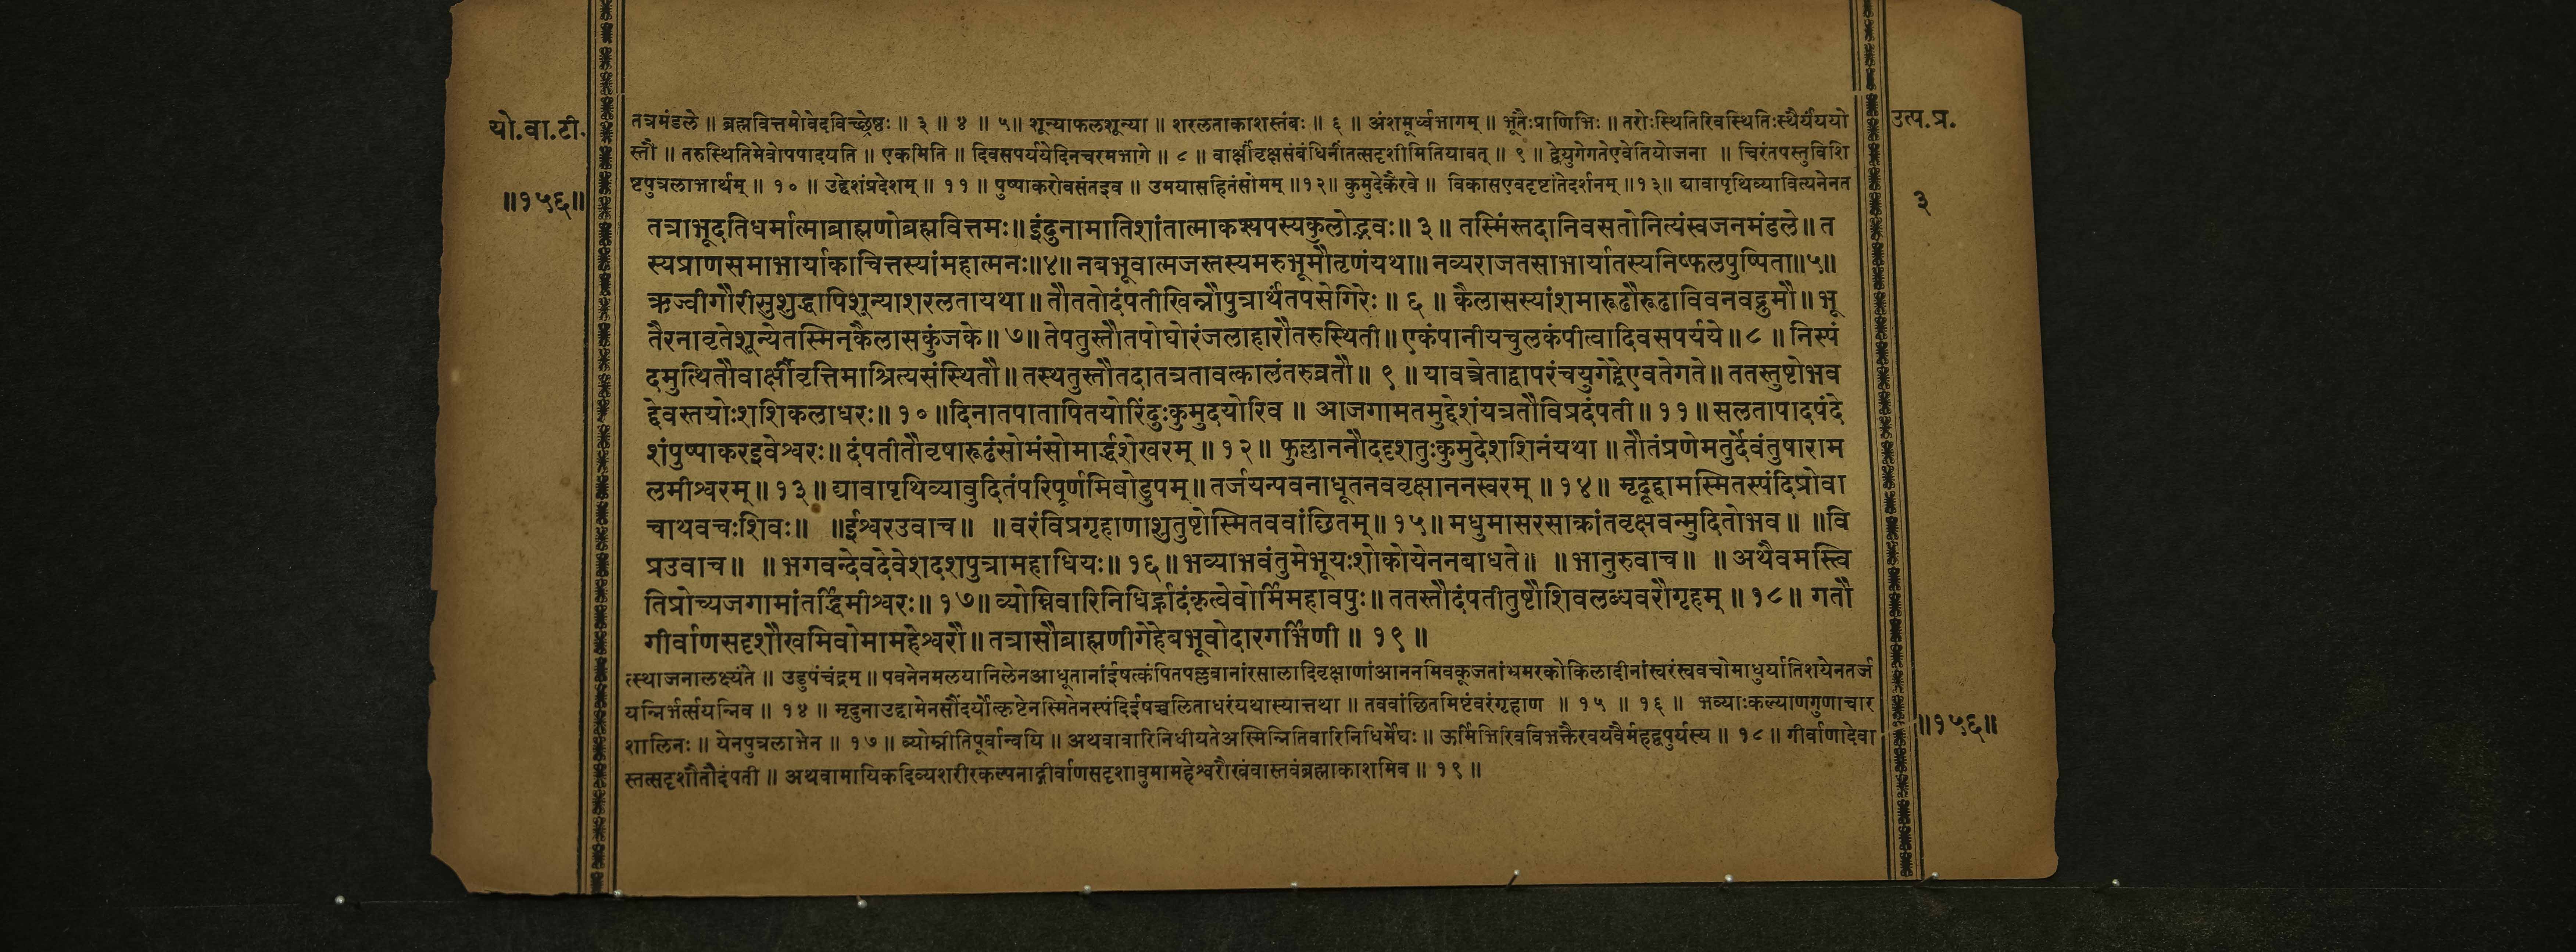 यो.वा.टी.
॥१५६॥
तत्रमंडले ॥ ब्रह्मवित्तमोवेदविच्छ्रेष्ठः ॥ ३ ॥ ४ ॥ ५॥ शून्याफलशून्या ॥ शरलताकाशस्तंबः ॥ ६ ॥ अंशमूर्ध्वभागम् ॥ भूतैःप्राणिभिः ॥ तरोःस्थितिरिवस्थितिःस्थैर्यंययो
स्तौ ॥ तरुस्थितिमेवोपपादयति ॥ एकमिति ॥ दिवसपर्ययेदिनचरमभागे ॥ ८ ॥ वार्क्षींवृक्षसंबंधिनींतत्सदृशीमितियावत् ॥ ९ ॥ द्वेयुगेगतेएवेतियोजना ॥ चिरंतपस्तुविशि
ष्टपुत्रलाभार्थम् ॥ १० ॥ उद्देशंप्रदेशम् ॥ ११ ॥ पुष्पाकरोवसंतइव ॥ उमयासहितंसोमम् ॥१२॥ कुमुदेकैरवे ॥ विकासएवदृष्टांतेदर्शनम् ॥१३॥ द्यावापृथिव्यावित्यनेनत
तत्राभूदतिधर्मात्माब्राह्मणोब्रह्मवित्तमः॥ इंदुनामातिशांतात्माकश्यपस्यकुलोद्भवः॥ ३॥ तस्मिंस्तदानिवसतोनित्यंस्वजनमंडले॥ त
स्यप्राणसमाभार्याकाचित्तस्यांमहात्मनः॥४॥ नबभूवात्मजस्तस्यमरुभूमौतृणंयथा॥ नव्यराजतसाभार्यातस्यनिष्फलपुष्पिता॥५॥
ऋज्वीगौरीसुशुद्धापिशून्याशरलतायथा॥ तौततोदंपतीखिन्नौपुत्रार्थंतपसेगिरेः॥ ६ ॥ कैलासस्यांशमारूढौरूढाविवनवद्रुमौ॥ भू
तैरनावृतेशून्येतस्मिन्कैलासकुंजके॥ ७॥ तेपतुस्तौतपोघोरंजलाहारौतरुस्थिती॥ एकंपानीयचुलकंपीत्वादिवसपर्यये॥ ८ ॥ निस्पं
दमुत्थितौवार्क्षींवृत्तिमाश्रित्यसंस्थितौ॥ तस्थतुस्तौतदातत्रतावत्कालंतरुव्रतौ॥ ९ ॥ यावत्त्रेताद्वापरंचयुगेद्वेएवतेगते॥ ततस्तुष्टोभव
द्देवस्तयोःशशिकलाधरः॥ १० ॥दिनातपातापितयोरिंदुःकुमुदयोरिव ॥ आजगामतमुद्देशंयत्रतौविप्रदंपती॥ ११॥ सलतापादपंदे
शंपुष्पाकरइवेश्वरः॥ दंपतीतौवृषारूढंसोमंसोमार्द्धशेखरम् ॥ १२॥ फुल्लाननौददृशतुःकुमुदेशशिनंयथा ॥ तौतंप्रणेमतुर्देवंतुषाराम
लमीश्वरम्॥ १३॥ द्यावापृथिव्यावुदितंपरिपूर्णमिवोडुपम्॥ तर्जयन्पवनाधूतनववृक्षाननस्वरम् ॥ १४॥ मृदूद्दामस्मितस्पंदिप्रोवा
चाथवचःशिवः॥ ॥ईश्वरउवाच॥ ॥ वरंविप्रगृहाणाशुतुष्टोस्मितववांछितम्॥ १५॥ मधुमासरसाक्रांतवृक्षवन्मुदितोभव॥ ॥वि
प्रउवाच॥ ॥ भगवन्देवदेवेशदशपुत्रामहाधियः॥ १६॥ भव्याभवंतुमेभूयःशोकोयेननबाधते॥ ॥भानुरुवाच॥ ॥ अथैवमस्त्वि
तिप्रोच्यजगामांतर्द्धिमीश्वरः॥ १७॥ व्योम्निवारिनिधिर्ह्रादंकृत्वेवोर्मिमहावपुः॥ ततस्तौदंपतीतुष्टौशिवलब्धवरौगृहम् ॥ १८॥ गतौ
गीर्वाणसदृशौखमिवोमामहेश्वरौ॥ तत्रासौब्राह्मणीगेहेबभूवोदारगर्भिणी ॥ १९ ॥
त्स्थाजनालक्ष्यंते ॥ उडुपंचंद्रम् ॥ पवनेनमलयानिलेनआधूतानांईषत्कंपितपल्लवानांरसालादिवृक्षाणांआननमिवकूजतांभ्रमरकोकिलादीनांस्वरंस्ववचोमाधुर्यातिशयेनतर्ज
यन्निर्भर्त्सयन्निव ॥ १४ ॥ मृदुनाउद्दामेनसौंदर्योत्कृष्टेनस्मितेनस्पंदिईषच्चलिताधरंयथास्यात्तथा ॥ तववांछितमिष्टंवरंगृहाण ॥ १५ ॥ १६ ॥ भव्याःकल्याणगुणाचार
शालिनः ॥ येनपुत्रलाभेन ॥ १७ ॥ व्योम्नीतिपूर्वान्वयि ॥ अथवावारिनिधीयतेअस्मिन्नितिवारिनिधिर्मेघः ॥ ऊर्मिभिरिवविभक्तैरवयवैर्महद्वपुर्यस्य ॥ १८ ॥ गीर्वाणादेवा
स्तत्सदृशौतौदंपती ॥ अथवामायिकदिव्यशरीरकल्पनाद्गीर्वाणसदृशावुमामहेश्वरौखंवास्तवंब्रह्माकाशमिव ॥ १९ ॥
उत्प.प्र.
३
॥१५६॥